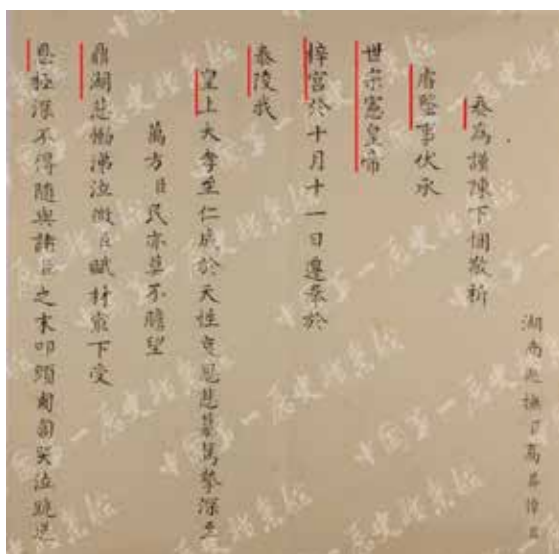 湖南巡撫臣高其倬
奏為謹陳下悃敬祈
睿鑒事伏承
世宗憲皇帝
梓宮於十月十一日遷奉於
泰陵我
皇上大孝至仁成於天性悲慕篤摯深至
萬方臣民亦莫不瞻望
鼎湖悲慟涕泣微臣賦材最下受
恩極深不得隨與諸臣之末叩頭匍匐哭泣跪送
中国第一历史档案馆